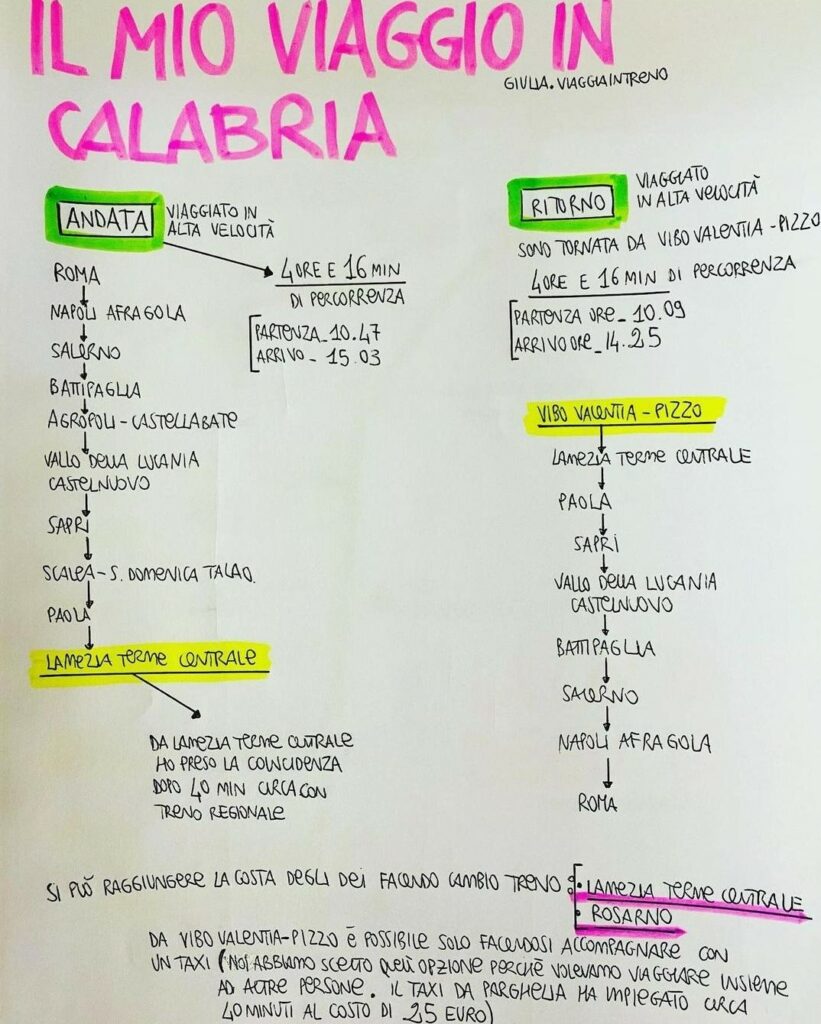 IL MIO VIAGGIO IN
CALABRIA
GIULIA.VIAGGIAINTRENO
ANDATA
VIAGGIATO IN
ALTA VELOCITÀ
4 ORE E 16 MIN
DI PERCORRENZA
PARTENZA_10.47
ARRIVO - 15.03
ROMA
NAPOLI AFRAGOLA
SALERNO
BATTIPAGLIA
AGROPOLI-CASTELLABATE
VALLO DELLA LUCANIA
CASTELNUOVO
SAPRI
SCALEA-S. DOMENICA TALAO.
PAOLA
LAMEZIA TERME CENTRALE
DA LAMEZIA TERME CENTRALE
HO PRESO LA COINCIDENZA
DOPO 40 MIN CIRCA CON
TRENO REGIONALE
RITORNO
VIAGGIATO
IN ALTA VELOCITÀ
SONO TORNATA DA VIBO VALENTIA-PIZZO
4 ORE E 16 MIN DI PERCORRENZA
PARTENZA ORE_ 10.09
ARRIVO ORE_14.25
VIBO VALENTIA-PIZZO
LAMEZIA TERME CENTRALE
PAOLA
SAPRI
VALLO DELLA LUCANIA
CASTELNUOVO
BATTIPAGLIA
SALERNO
NAPOLI AFRAGOLA
ROMA
SI PUÒ RAGGIUNGERE LA COSTA DEGLI DEI FACENDO CAMBIO TRENO:
• LAMEZIA TERME CENTRALE
• ROSARNO
DA VIBO VALENTIA-PIZZO È POSSIBILE SOLO FACENDOSI ACCOMPAGNARE CON
UN TAXI (NOI ABBIAMO SCELTO QUELL'OPZIONE PERCHÈ VOLEVAMO VIAGGIARE INSIEME
AD ALTRE PERSONE. IL TAXI DA PARGHELIA HA IMPIEGATO CIRCA
40 MINUTI AL COSTO DI 25 EURO)